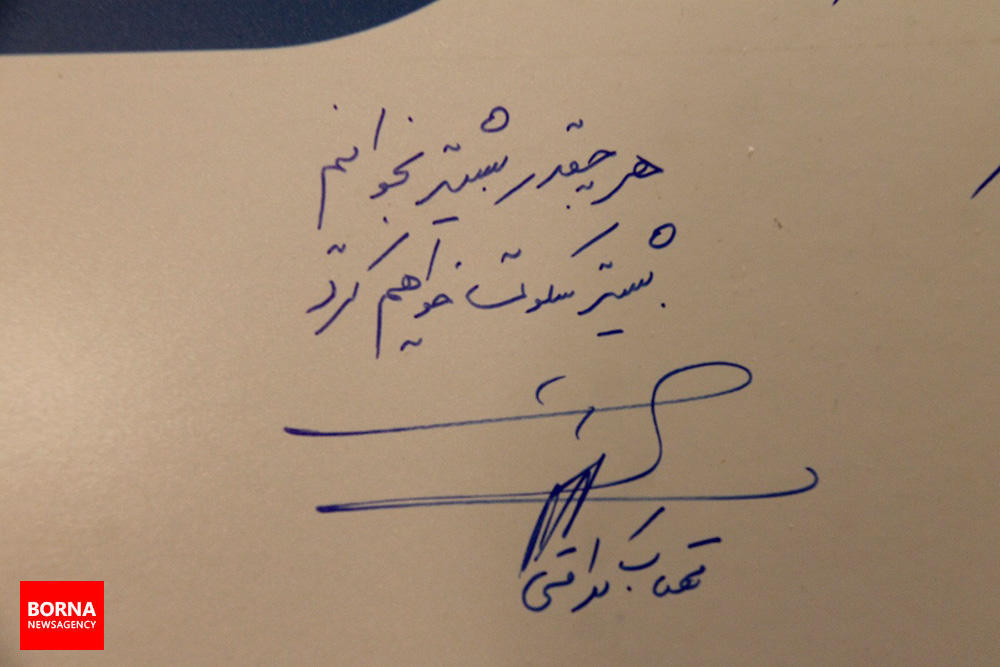 هر چقدر بیشتر بخوانیم
بیشتر سکوت خواهیم کرد
BORNA
NEWSAGENCY